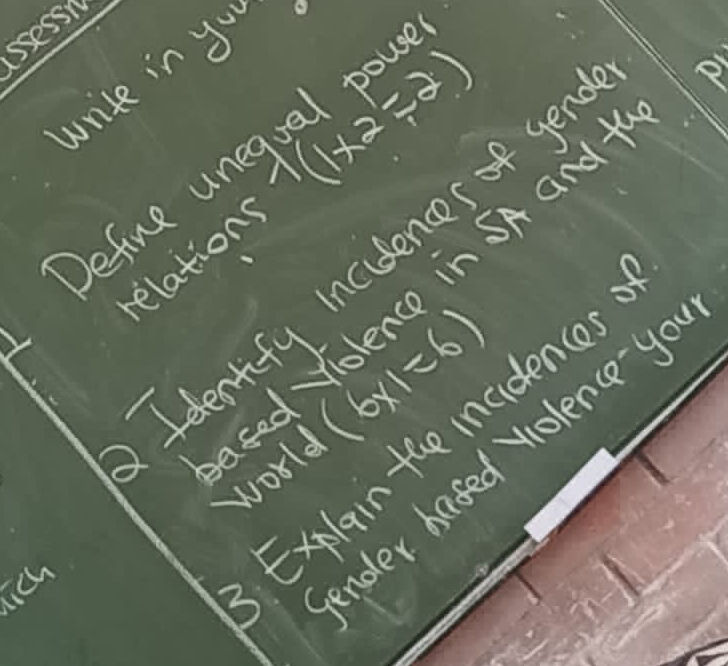 assessm
Write in your
1 Define unequal power
relations (1x2=2)
2 Identify incidences of gender
based violence in SA and the
world (6x1=6)
3 Explain the incidences of
Gender based violence-your